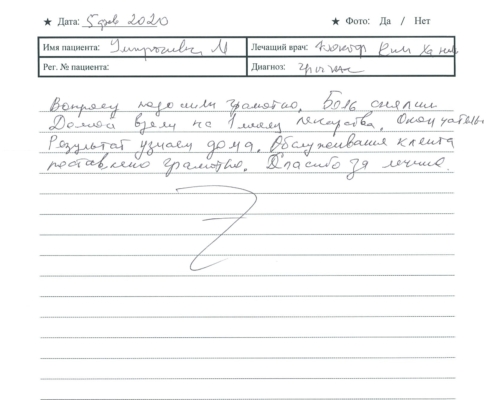 ★ Дата: 5 фев 2020 ★ Фото: Да / Нет
Имя пациента: М Лечащий врач: Доктор Ким Ха
Рег. № пациента: Диагноз: грыжа
Вопросу подошли грамотно. Боль сняли
Домой взяли на 1 месяц лекарства. Окончательн
Результат узнаем дома. Обслуживание клиента
поставлено грамотно. Спасибо за лечение.